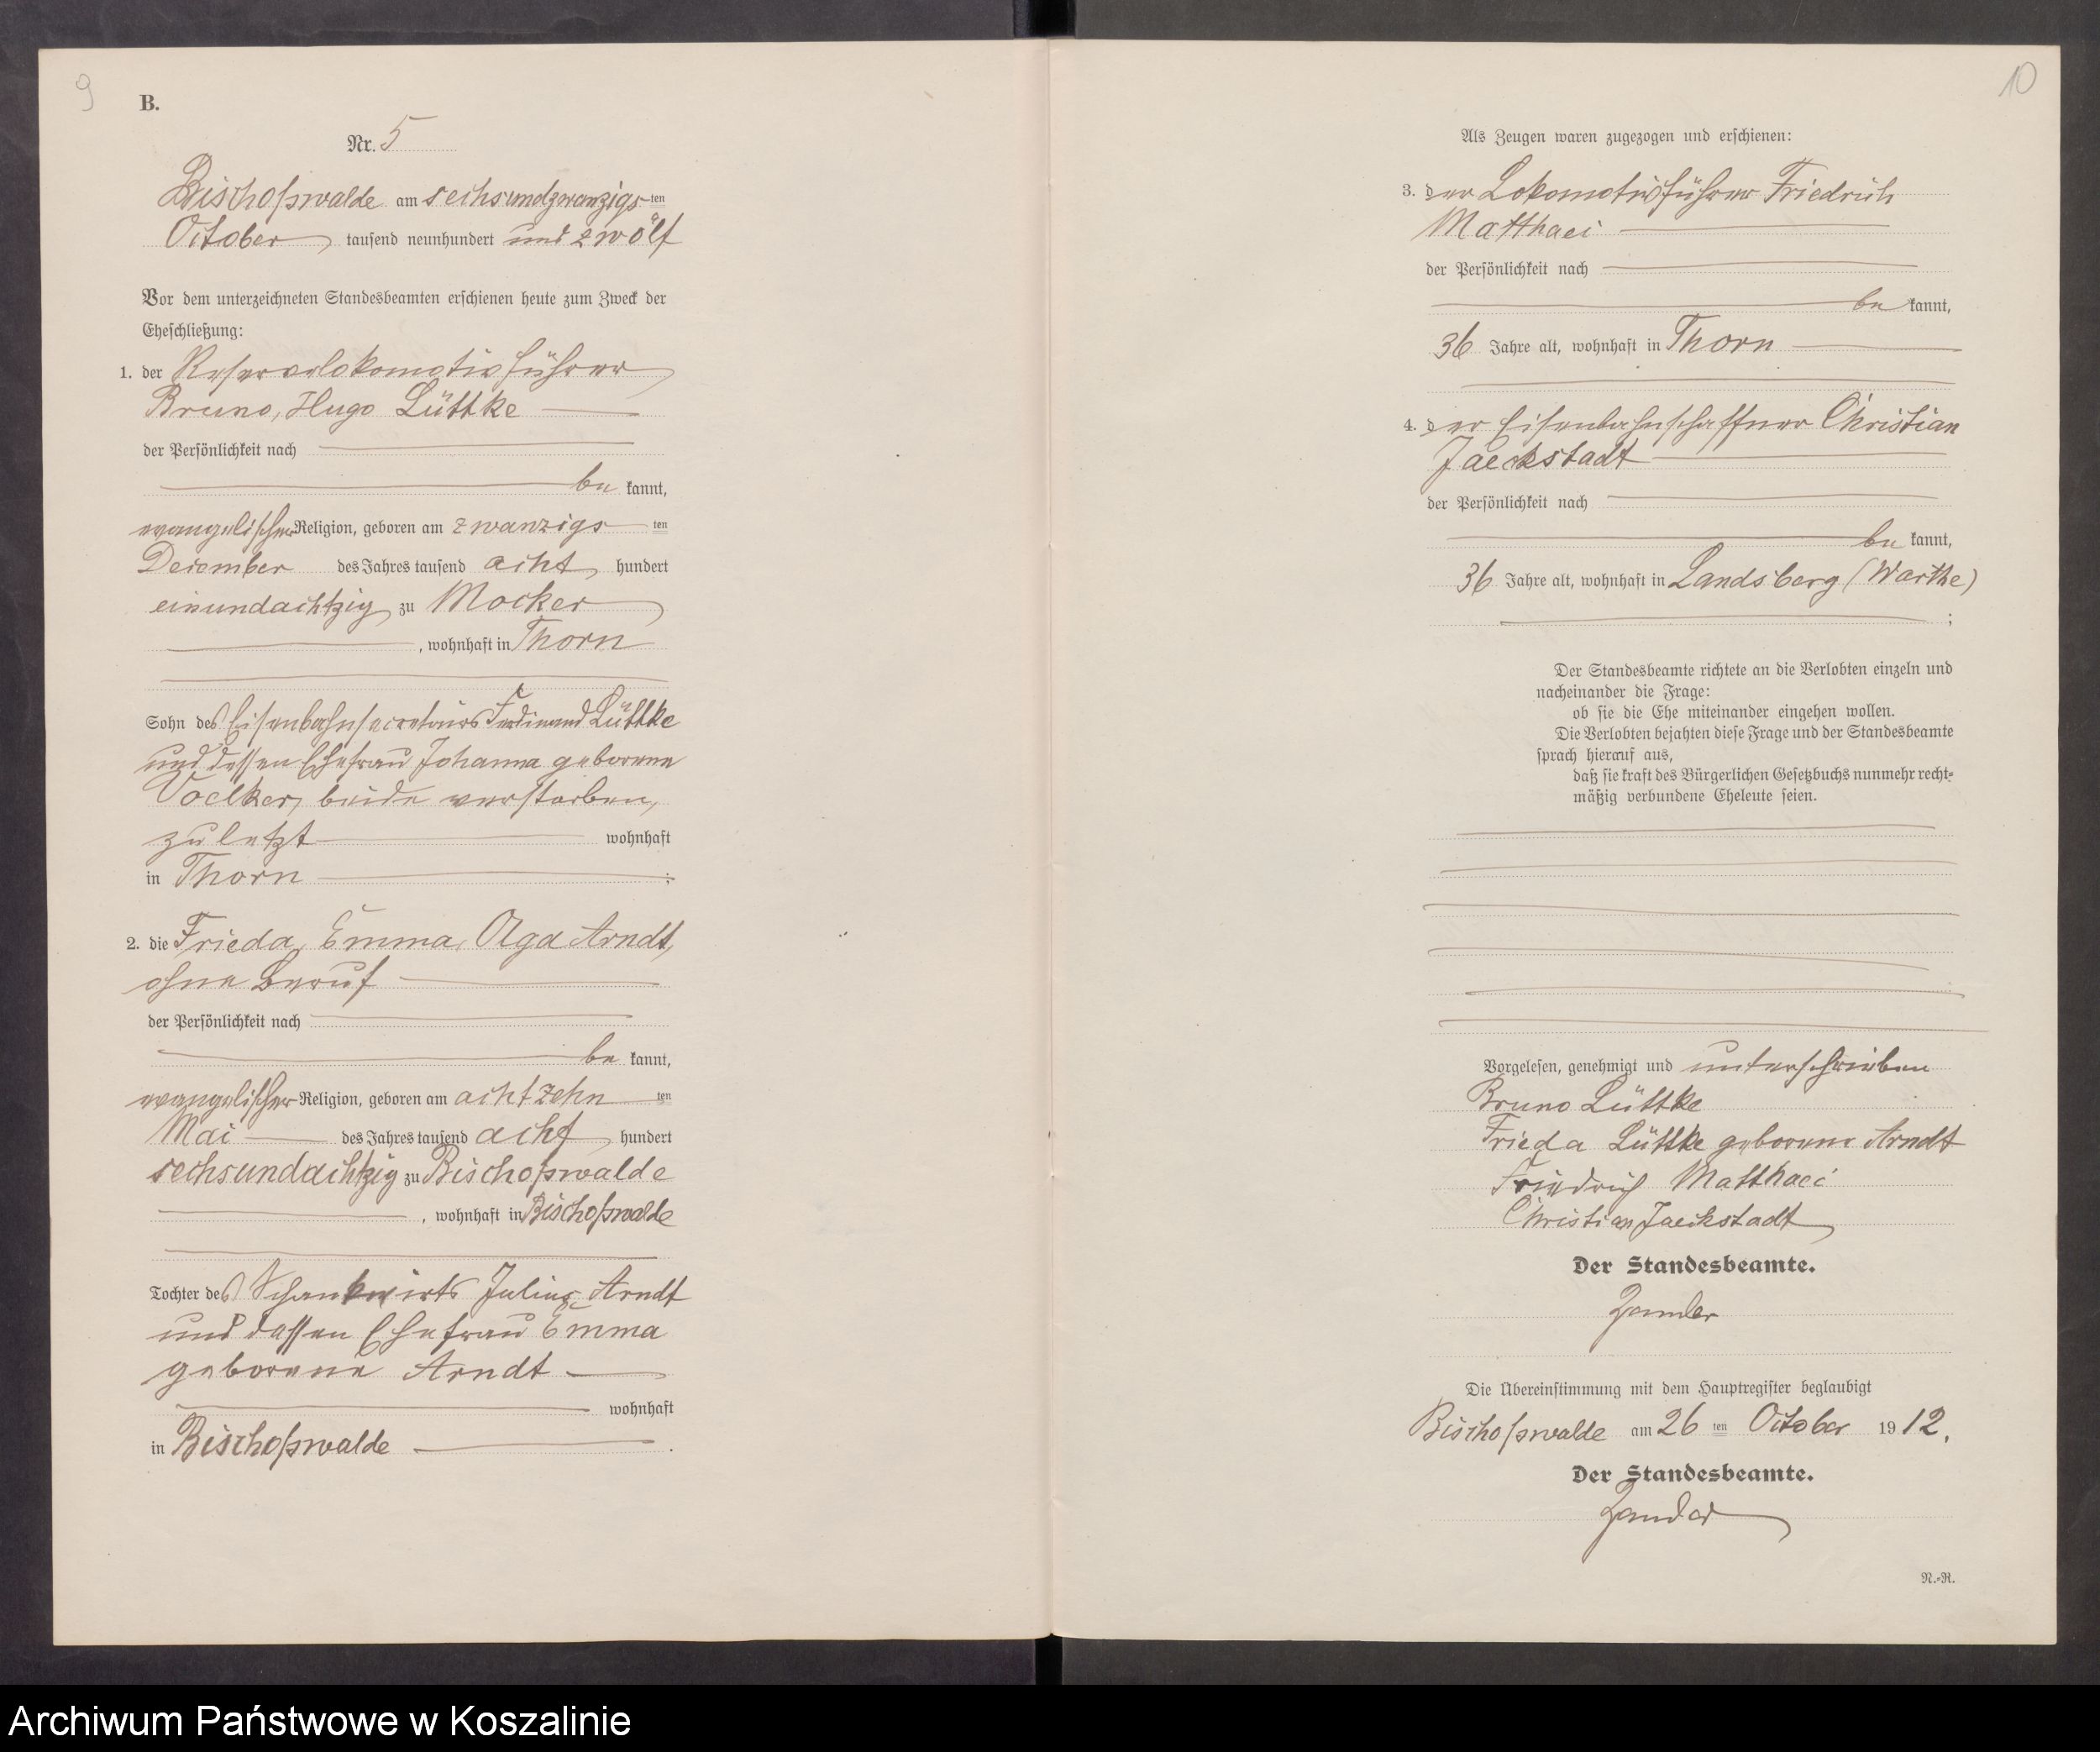 9
B.
Nr. 5
Bischofswalde am sechsundzwanzigs ten
October tausend neunhundert und zwölf
Vor dem unterzeichneten Standesbeamten erschienen heute zum Zweck der
Eheschließung:
1. der Reservelokomotivführer
Bruno, Hugo Lüttke
der Persönlichkeit nach
be kannt,
evangelischer Religion, geboren am zwanzigs ten
December des Jahres tausend acht hundert
einundachtzig zu Mocker
, wohnhaft in Thorn
Sohn des Eisenbahnsecretairs Ferdinand Lüttke
und dessen Ehefrau Johanna geborene
Voelker, beide verstorben,
zuletzt wohnhaft
in Thorn ;
2. die Frieda, Emma, Olga Arndt,
ohne Beruf
der Persönlichkeit nach
be kannt,
evangelischer Religion, geboren am achtzehn ten
Mai des Jahres tausend acht hundert
sechsundachtzig zu Bischofswalde
, wohnhaft in Bischofswalde
Tochter des Schankwirts Julius Arndt
und dessen Ehefrau Emma
geborene Arndt
wohnhaft
in Bischofswalde .
10
Als Zeugen waren zugezogen und erschienen:
3. der Lokomotivführer Friedrich
Matthaei
der Persönlichkeit nach
be kannt,
36 Jahre alt, wohnhaft in Thorn
4. der Eisenbahnschaffner Christian
Jaeckstadt
der Persönlichkeit nach
be kannt,
36 Jahre alt, wohnhaft in Landsberg (Warthe)
;
Der Standesbeamte richtete an die Verlobten einzeln und
nacheinander die Frage:
ob sie die Ehe miteinander eingehen wollen.
Die Verlobten bejahten diese Frage und der Standesbeamte
sprach hierauf aus,
daß sie kraft des Bürgerlichen Gesetzbuchs nunmehr recht-
mäßig verbundene Eheleute seien.
Vorgelesen, genehmigt und unterschrieben
Bruno Lüttke
Frieda Lüttke geborene Arndt
Friedrich Matthaei
Christian Jaeckstadt
Der Standesbeamte.
Zander
Die Übereinstimmung mit dem Hauptregister beglaubigt
Bischofswalde am 26 ten October 19 12.
Der Standesbeamte.
Zander
N.-R.
Archiwum Państwowe w Koszalinie